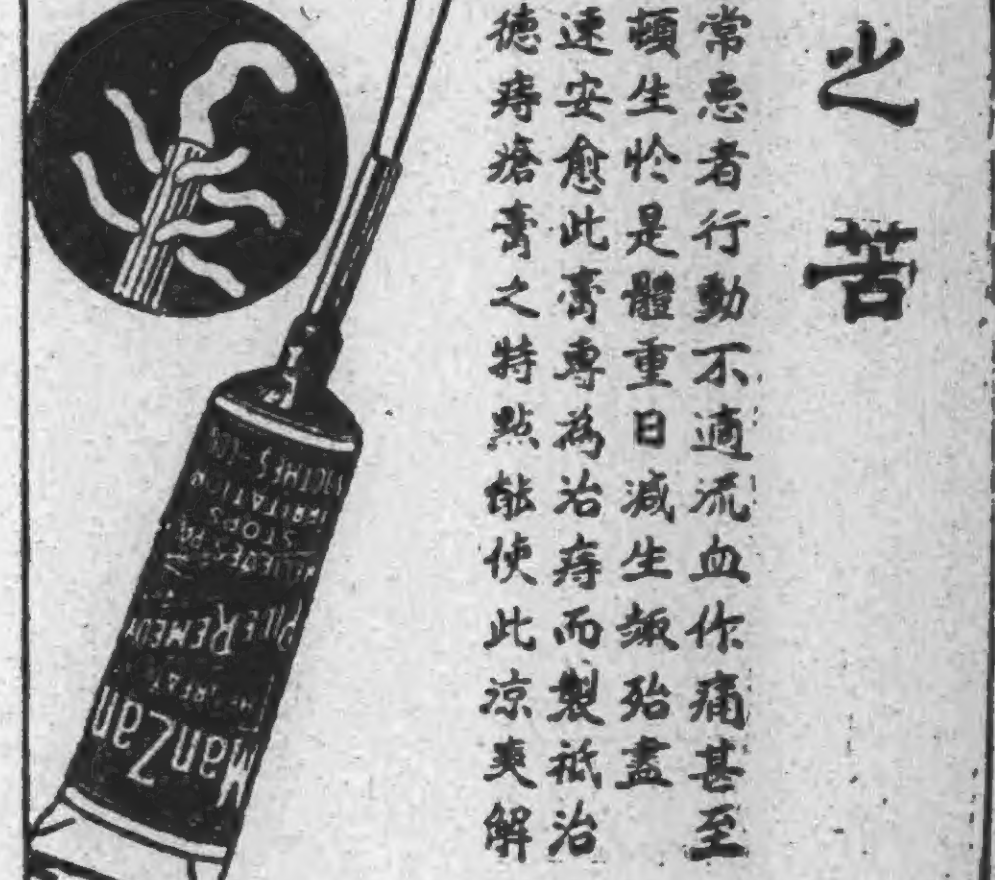 之苦
常患者行動不適流血作痛甚至
頓生於是體重日減生趣殆盡
速安愈此膏專為治痔而製祇治
德痔瘡膏之特點能使此涼爽解
ManZan
GREAT
PILE REMEDY
RELIEVES PA
STOPS
IRRITATION
SOOTHES